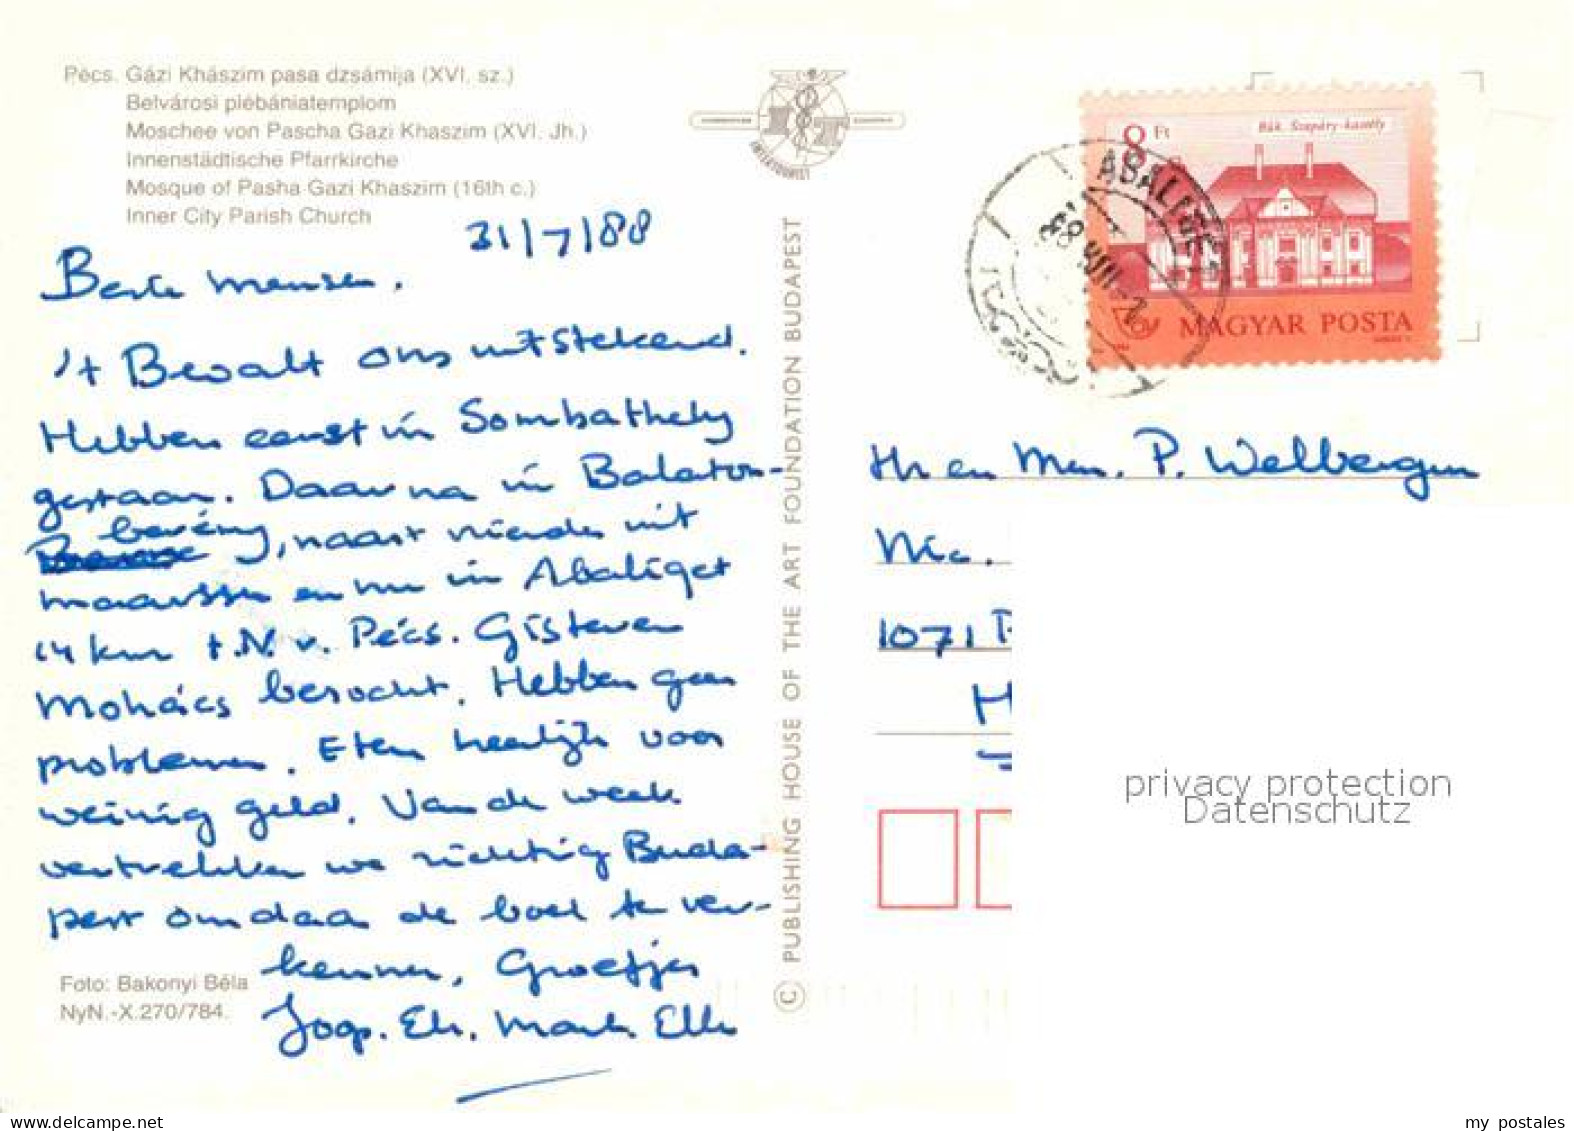 Pécs. Gázi Khászim pasa dzsámija (XVI. sz.)
Belvárosi plébániatemplom
Moschee von Pascha Gazi Khaszim (XVI. Jh.)
Innenstädtische Pfarrkirche
Mosque of Pasha Gazi Khaszim (16th c.)
Inner City Parish Church
31/7/88
Beste mensen,
't Bevalt ons uitstekend.
Hebben eerst in Sombathely
gestaan. Daarna in Balaton-
berény, naast vrienden uit
maarssen en nu in Abaliget
14 km t.N.v. Pécs. Gisteren
Mohács bezocht. Hebben geen
problemen. Eten heerlijk voor
weinig geld. Van de week
vertrekken we richting Buda-
pest om daar de boel te ver-
kennen. Groetjes
Joop. Els. Mark Elle
Foto: Bakonyi Béla
NyN.-X.270/784.
© PUBLISHING HOUSE OF THE ART FOUNDATION BUDAPEST
INTERTOURIST
8 Ft
Bük. Szapáry-kastély
MAGYAR POSTA
ABALIGET
Hr en Mm. P. Welbergen
Nic.
1071
H
privacy protection
Datenschutz
my postales
www.delcampe.net